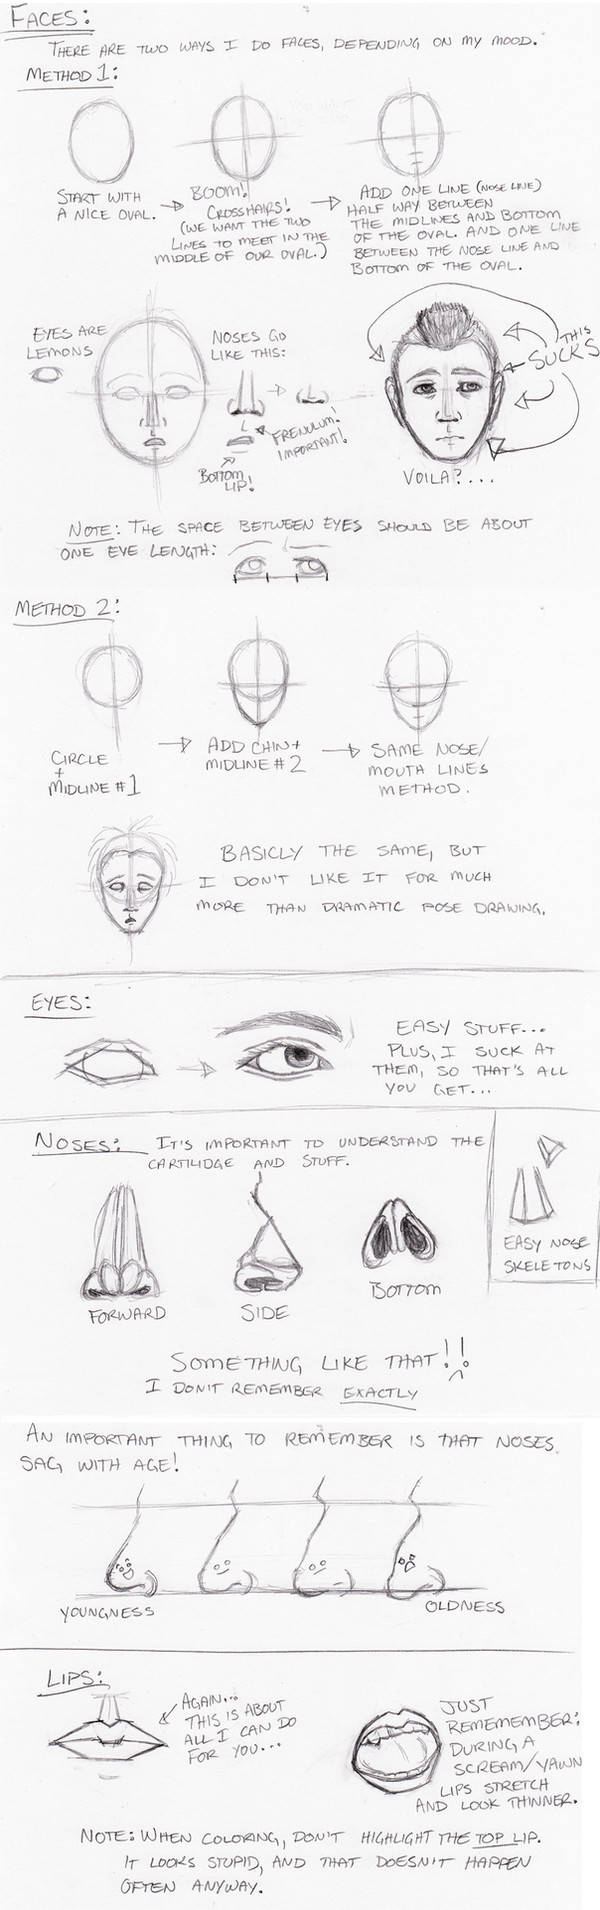 FACES:
THERE ARE TWO WAYS I DO FACES, DEPENDING ON MY MOOD.
METHOD 1:
START WITH
A NICE OVAL.
BOOM!
CROSSHAIRS!
(WE WANT THE TWO
LINES TO MEET IN THE
MIDDLE OF OUR OVAL.)
ADD ONE LINE (NOSE LINE)
HALF WAY BETWEEN
THE MIDLINES AND BOTTOM
OF THE OVAL. AND ONE LINE
BETWEEN THE NOSE LINE AND
BOTTOM OF THE OVAL.
EYES ARE
LEMONS
NOSES GO
LIKE THIS:
FRENULUM!
IMPORTANT!
BOTTOM
LIP!
THIS
SUCKS
VOILA?...
NOTE: THE SPACE BETWEEN EYES SHOULD BE ABOUT
ONE EYE LENGTH:
METHOD 2:
CIRCLE
+
MIDLINE #1
ADD CHIN +
MIDLINE #2
SAME NOSE/
MOUTH LINES
METHOD.
BASICLY THE SAME, BUT
I DON'T LIKE IT FOR MUCH
MORE THAN DRAMATIC POSE DRAWING.
EYES:
EASY STUFF...
PLUS, I SUCK AT
THEM, SO THAT'S ALL
YOU GET...
NOSES: IT'S IMPORTANT TO UNDERSTAND THE
CARTILIDGE AND STUFF.
FORWARD
SIDE
BOTTOM
EASY NOSE
SKELETONS
SOMETHING LIKE THAT!!
I DON'T REMEMBER EXACTLY
AN IMPORTANT THING TO REMEMBER IS THAT NOSES
SAG WITH AGE!
YOUNGNESS
OLDNESS
LIPS:
AGAIN...
THIS IS ABOUT
ALL I CAN DO
FOR YOU...
JUST
REMEMEMBER:
DURING A
SCREAM/YAWN
LIPS STRETCH
AND LOOK THINNER.
NOTE: WHEN COLORING, DON'T HIGHLIGHT THE TOP LIP.
IT LOOKS STUPID, AND THAT DOESN'T HAPPEN
OFTEN ANYWAY.